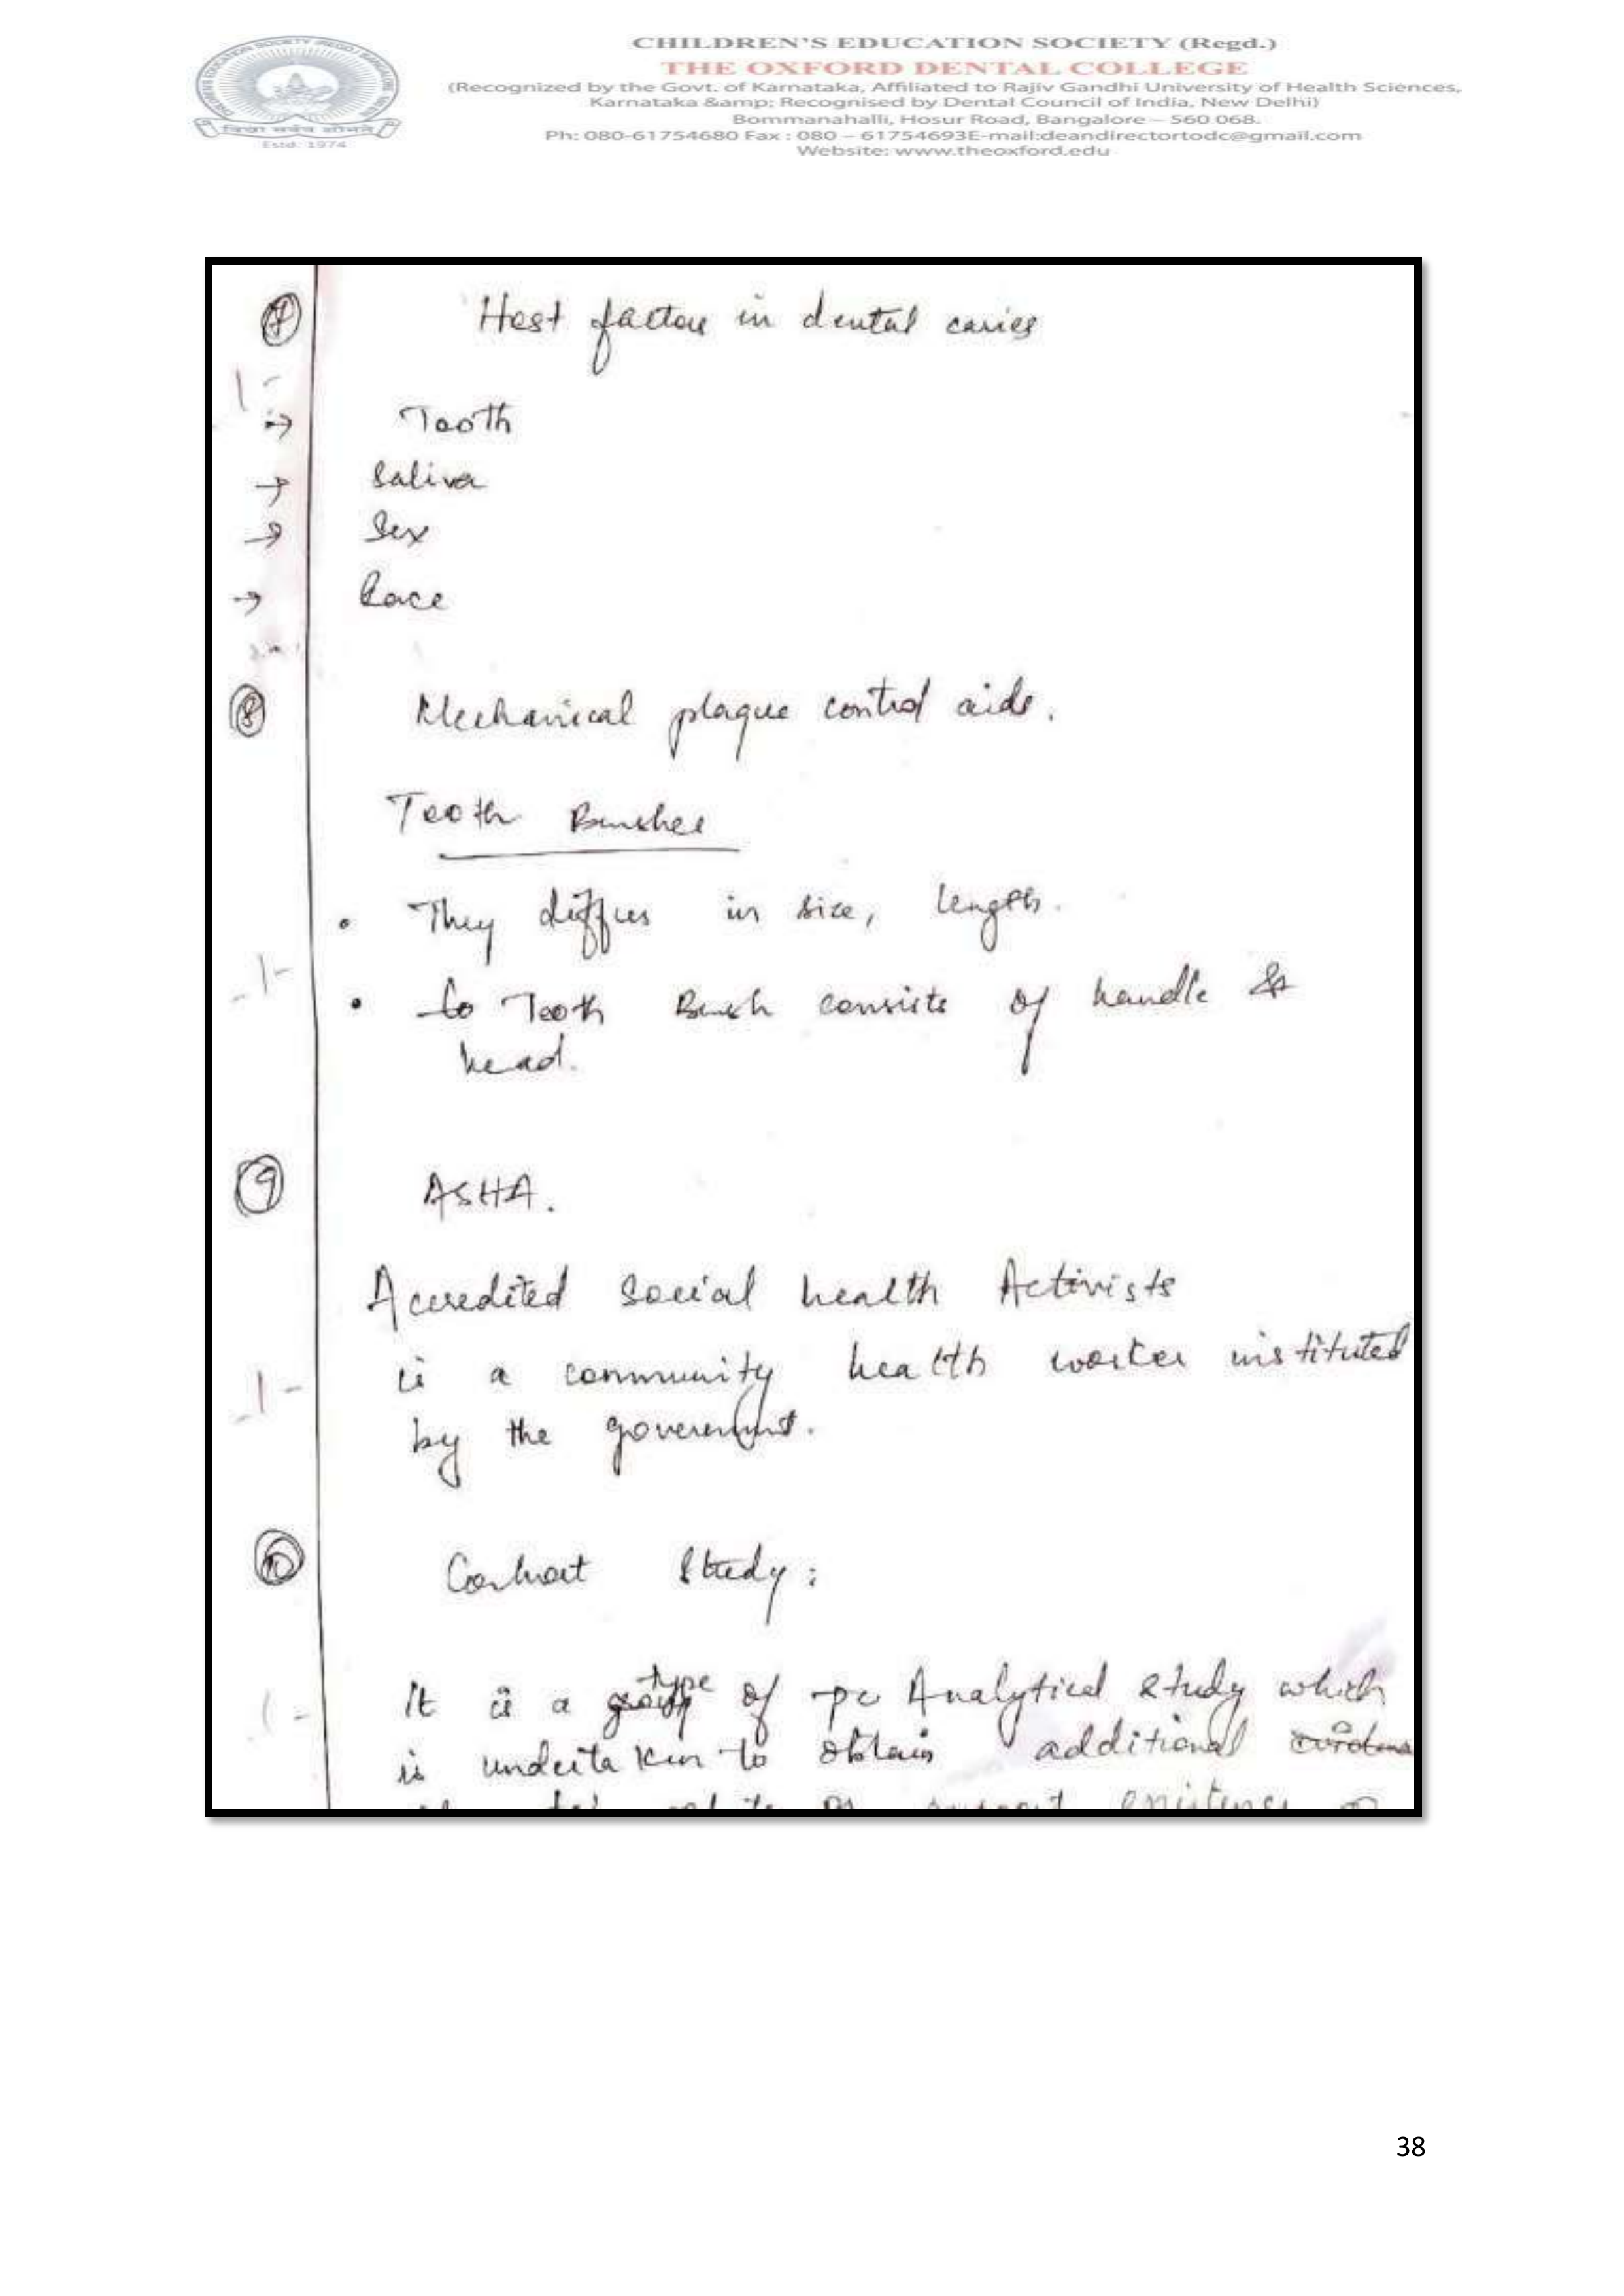 CHILDREN'S EDUCATION SOCIETY (Regd.)
THE OXFORD DENTAL COLLEGE
(Recognized by the Govt. of Karnataka, Affiliated to Rajiv Gandhi University of Health Sciences,
Karnataka &amp; Recognised by Dental Council of India, New Delhi)
Bommanahalli, Hosur Road, Bangalore – 560 068.
Ph: 080-61754680 Fax : 080 – 61754693E-mail:deandirectortodc@gmail.com
Website: www.theoxford.edu
Estd. 1974
7 Host factors in dental caries
1-
→ Tooth
→ Saliva
→ Sex
→ Race
8 Mechanical plaque control aids.
Tooth Brushes
• They differs in size, length.
-1-
• to Tooth Brush consists of handle &
head.
9 ASHA.
Accredited Social health Activists
is a community health worker instituted
-1-
by the government.
10 Corhort Study:
It is a group type of Analytical study which
1-
is undertaken to obtain additional
38